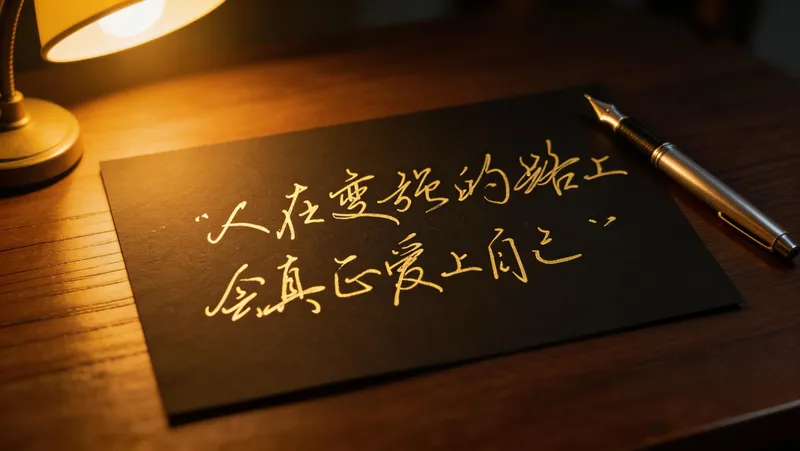 “人在变强的路上
会真正爱上自己”